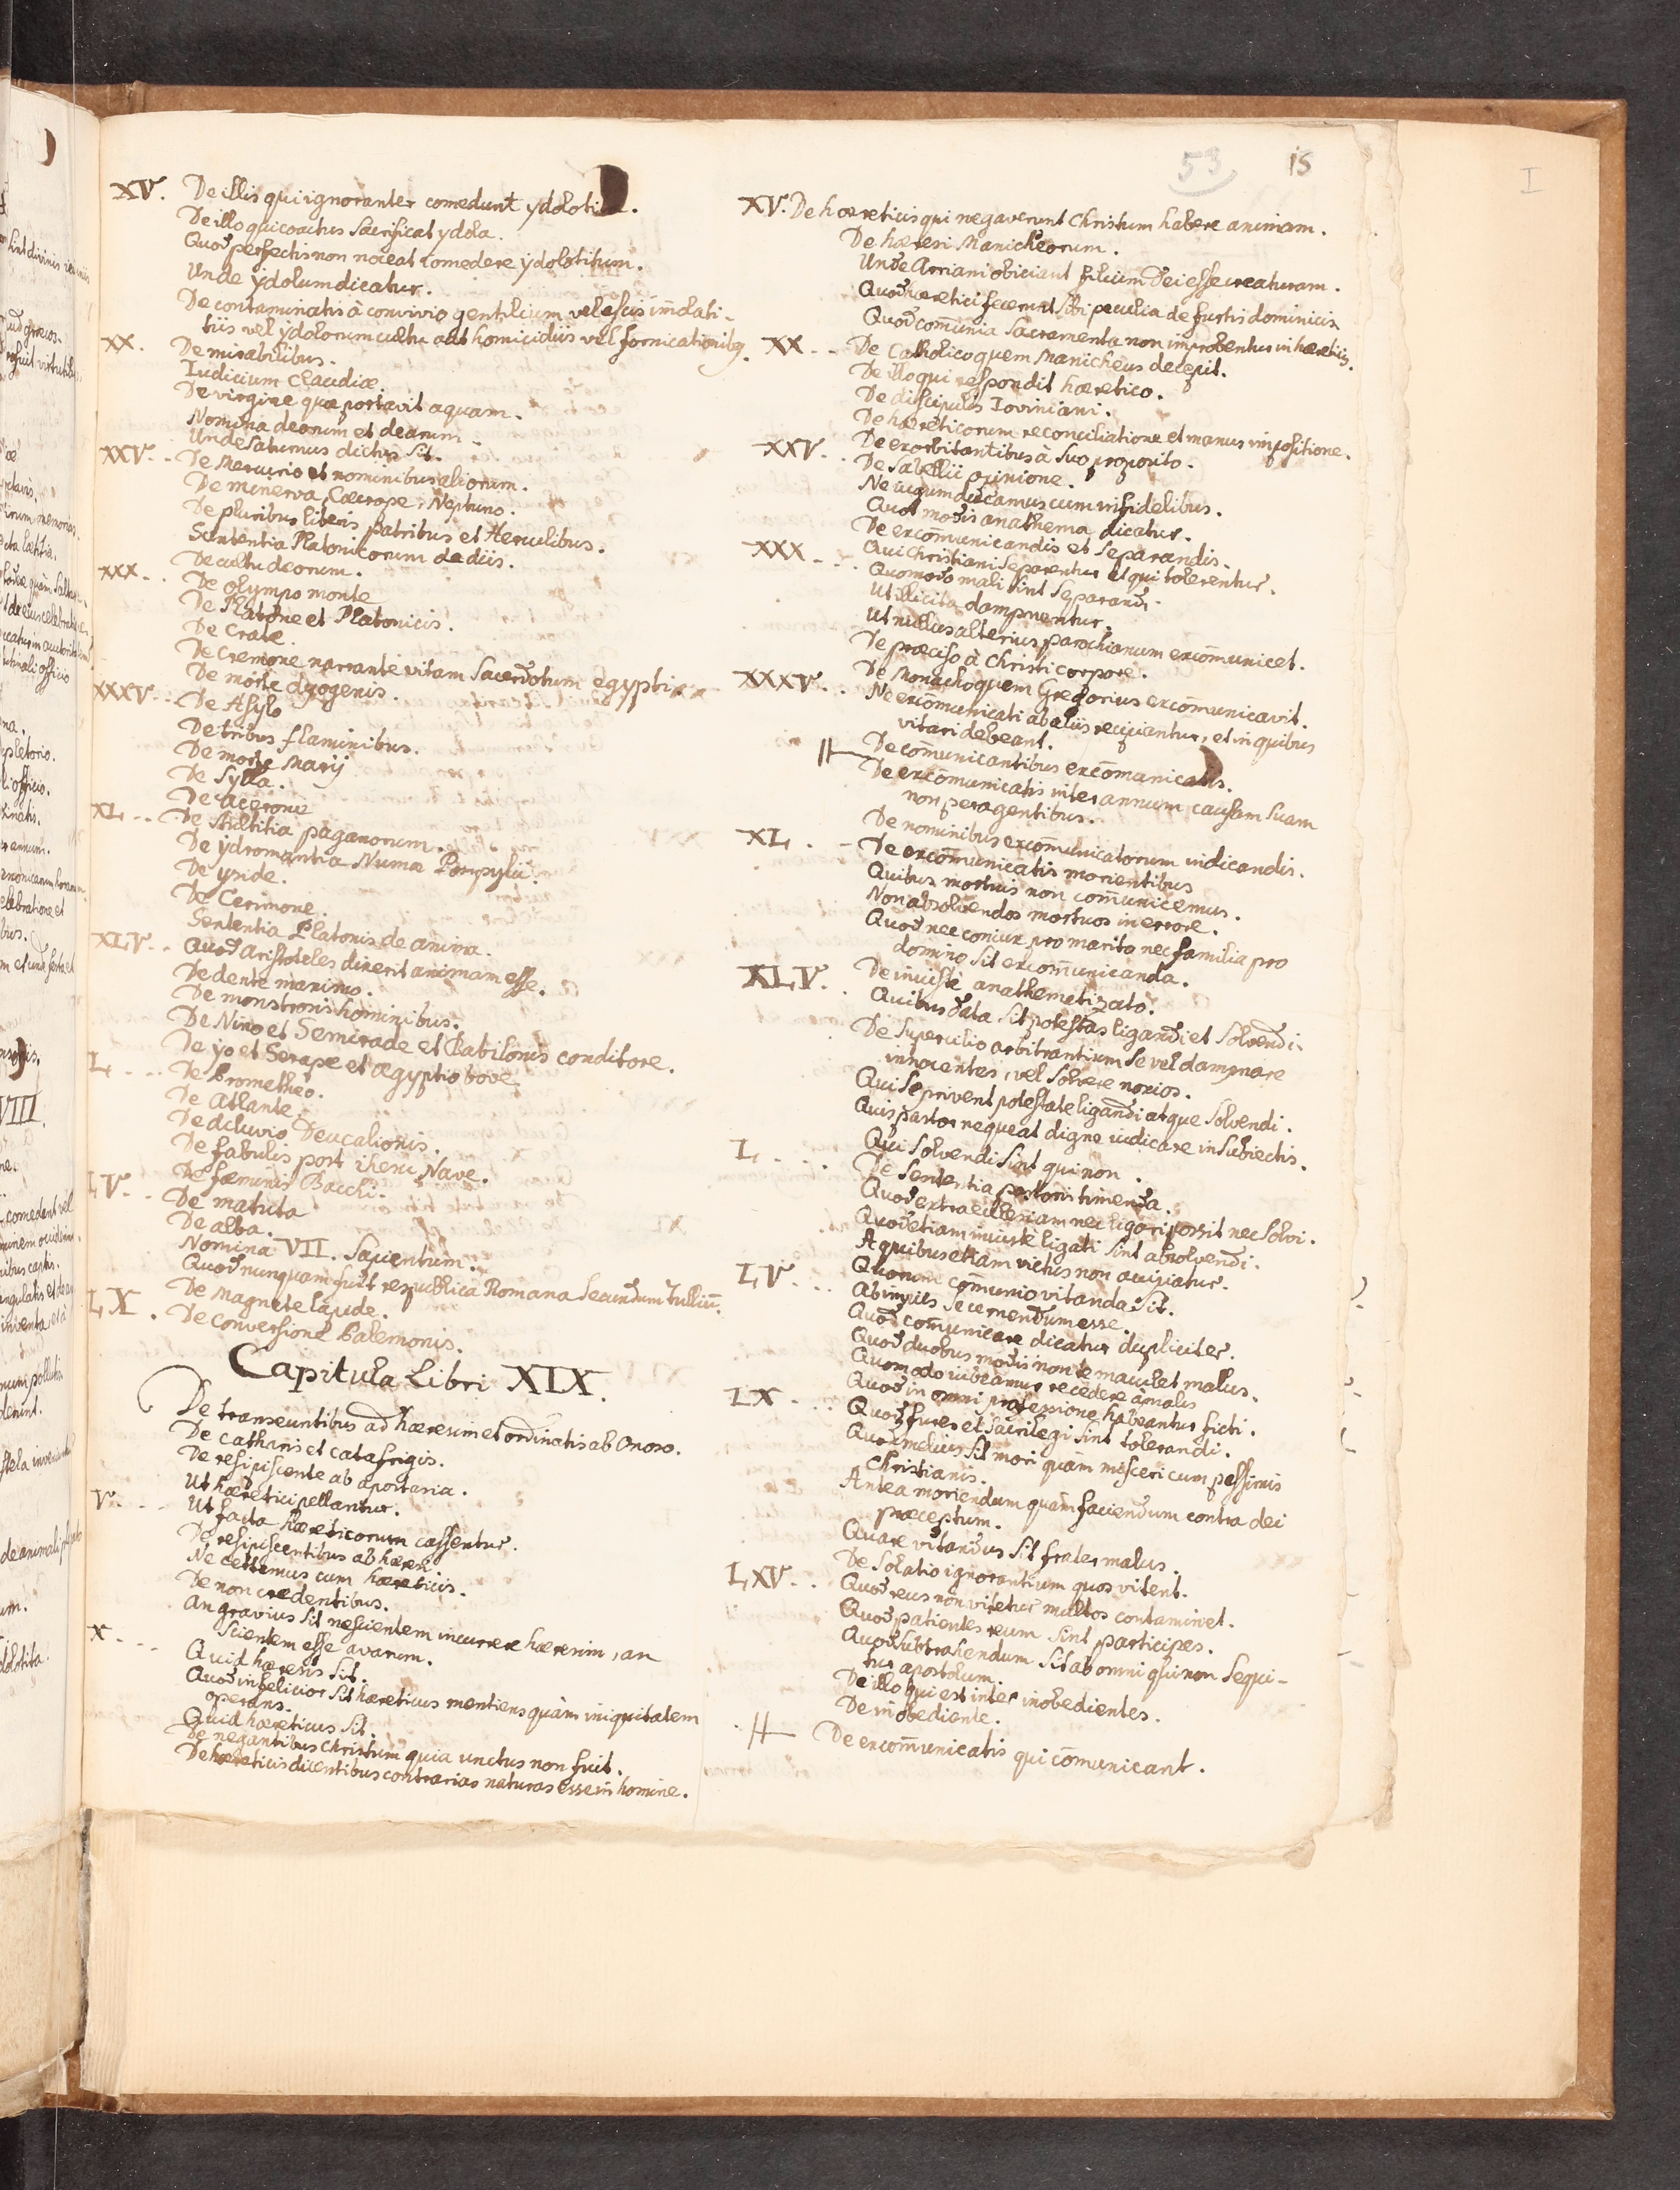 53 15
I
XV. De illis qui ignoranter comedunt ydoloti
De illo qui coactus sacrificat ydola.
Quod perfectis non noceat comedere ydolotitum.
Unde ydolum dicatur.
De contaminatis à convivio gentilium vel escis immolati-
tiis vel ydolorum cultu aut homicidiis vel fornicationibus
XX. De mirabilibus.
Iudicium Claudiæ
De virgine quæ portavit aquam.
Nomina deorum et dearum
Unde Saturnus dictus sit.
XXV. De Mercurio et nominibus aliorum.
De minerva, Cæcrope, Neptuno.
De pluribus liberis patribus et Herculibus.
Sententia Platonicorum de diis.
De cultu deorum.
XXX. De olympo monte
De Platone et Platonicis.
De Crate
De Cremone narrante vitam Sacerdotum egypti
De morte dyogenis.
XXXV. De Asylo
De tribus flaminibus.
De morte Marij
De Sylla.
De acerone
XL. De stultitia paganorum.
De ydromantia Numa Pompylii.
De yside.
De Cerimone.
Sententia Platonis de anima.
XLV. Quod aristoteles dixerit animam esse.
De dente maximo.
De monstrosis hominibus.
De Nino et Semirade et Babilonis conditore.
De yo et Serape et ægyptio bove
L. De Prometheo.
De Atlante.
De diluvio Deucalionis.
De fabulis post ihesu Nave.
De fæminis Bacchi.
LV. De matuta
De alba.
Nomina VII. Sapientum.
Quod nunquam fuit respublica Romana secundum Tulliū.
De Magnete lapide.
LX. De conversione Palemonis.
Capitula Libri XIX.
De transeuntibus ad hæresim et ordinatis ab Onoso.
De catharis et catafrigis.
De resipiscente ab apostasia.
Ut hæretici pellantur.
V. Ut facta hæreticorum cassentur.
De resipiscentibus ab hæresi
Ne certemus cum hæreticis.
De non credentibus.
An gravius sit nescientem incurrere hæresim, an
scientem esse avarum.
X. Quid hæresis sit.
Quod infelicior sit hæreticus mentiens quàm iniquitatem
operans.
Quid hæreticus sit.
De negantibus Christum quia unctus non fuit.
De hæreticis dicentibus contrarias naturas esse in homine.
XV. De hæreticis qui negaverunt Christum habere animam.
De hæresi Manicheorum.
Unde Arriani obiciant filium Dei esse creaturam.
Quod hæretici fecerunt sibi peculia de furtis dominicis
Quod com̄unia Sacramenta non improbentur in hæreticis.
XX. De Catholico quem Manicheus decepit.
De illo qui respondit hæretico.
De discipulis Ioviniani.
De hæreticorum reconciliatione et manus impositione.
De exorbitantibus a suo proposito.
XXV. De Sabellii opinione.
Ne iugum ducamus cum infidelibus.
Quot modis anathema dicatur.
De excom̄unicandis et separandis.
Qui Christiani separentur et qui tolerentur.
XXX. Quomodo mali sint separandi.
Ut illicita dampnentur.
Ut nullus alterius parochianum excom̄unicet.
De præciso à Christi corpore.
De Monacho quem Gregorius excom̄unicavit.
XXXV. Ne excom̄unicati ab aliis recipiantur, et in quibus
vitari debeant.
De com̄unicantibus excom̄unicatis.
De excom̄unicatis inter annum causam suam
non peragentibus.
De nominibus excom̄unicatorum indicandis.
XL. De excom̄unicatis morientibus
Quibus mortuis non com̄unicemus.
Non absolvendos mortuos in errore.
Quod nec coniux pro marito nec familia pro
domino sit excom̄unicanda.
XLV. De iniuste anathemetizato.
Quibus data sit potestas ligandi et solvendi.
De supercilio arbitrantium se vel dampnare
innocentes, vel solvere noxios.
Qui se privent potestate ligandi atque solvendi.
Quis pastor nequeat digne iudicare in subiectis.
L. Qui solvendi sint qui non.
De sententia pastoris timenda.
Quod extra ecclesiam nec ligari possit nec solvi.
Quod etiam iniuste ligati sint absolvendi.
A quibus etiam victus non accipiatur.
LV. Quorum com̄unio vitanda sit.
Ab impiis secernendum esse.
Quod com̄unicare dicatur dupliciter.
Quod duobus modis non te maculet malus.
Quomodo iubeamur recedere à malis
Quod in omni professione habeantur ficti.
LX. Quod fures et Sacrilegi sint tolerandi.
Quod melius sit mori quam misceri cum pessimis
Christianis.
Antea moriendum quàm faciendum contra dei
præceptum.
Quare vitandus sit frater malus.
De solatio ignorantium quos vitent.
LXV. Quod reus non vitetur multos contaminet.
Quod patientes reum sint participes.
Quod subtrahendum sit ab omni qui non sequi-
tur apostolum.
De illo qui est inter inobedientes.
De inobediente.
De excom̄unicatis qui com̄unicant.